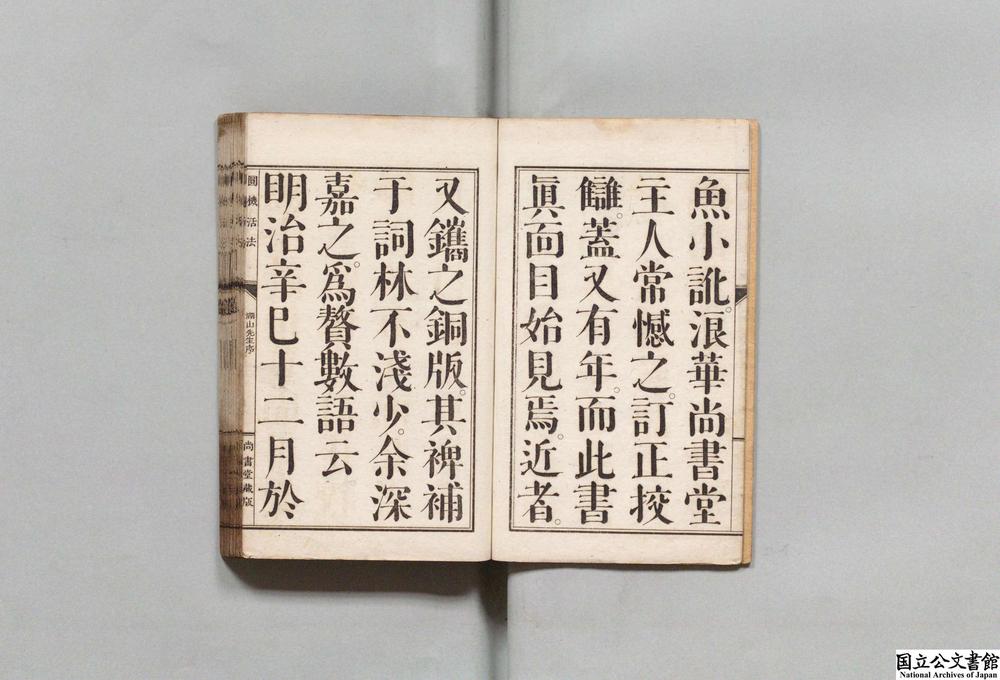 魚小訛。浪華尚書堂
主人常憾之。訂正挍
讎。蓋又有年。而此書
眞面目始見焉。近者。
又鐫之銅版。其裨補
于詞林不淺少。余深
嘉之。爲贅數語云
明治辛巳十二月於
圓機活法
湖山先生序
尚書堂藏版
国立公文書館
National Archives of Japan